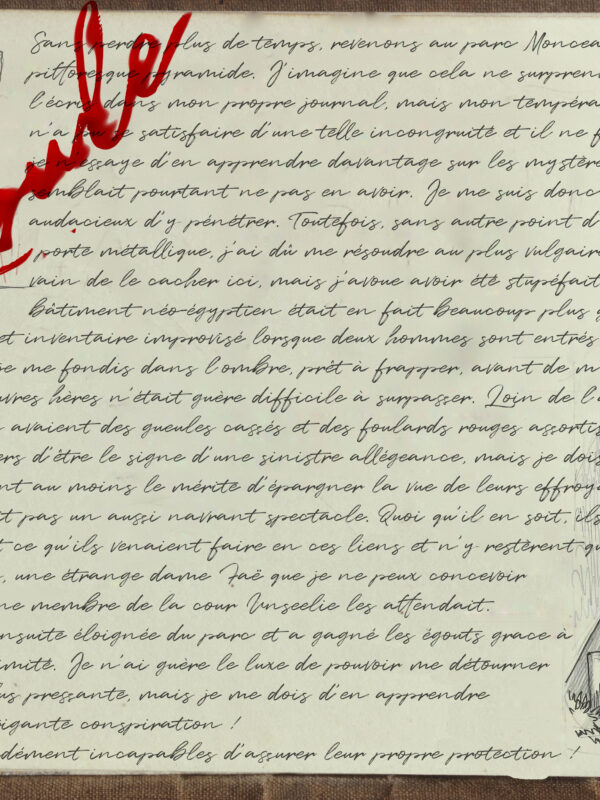 Sans perdre plus de temps, revenons au parc Moncea
pittoresque pyramide. J'imagine que cela ne surpren
l'écris dans mon propre journal, mais mon tempéra
n'a pu se satisfaire d'une telle incongruité et il ne f
je n'essaye d'en apprendre davantage sur les mystère
semblait pourtant ne pas en avoir. Je me suis donc
audacieux d'y pénétrer. Toutefois, sans autre point d
porte métallique, j'ai dû me résoudre au plus vulgaire
vain de le cacher ici, mais j'avoue avoir été stupéfait
bâtiment néo-égyptien était en fait beaucoup plus g
et inventaire improvisé lorsque deux hommes sont entrés
me fondis dans l'ombre, prêt à frapper, avant de m
uvres hères n'était guère difficile à surpasser. Loin de l'
avaient des gueules cassés et des foulards rouges assortis
ers d'être le signe d'une sinistre allégeance, mais je dois
nt au moins le mérite d'épargner la vue de leurs effroya
t pas un aussi navrant spectacle. Quoi qu'il en soit, ils
t ce qu'ils venaient faire en ces liens et n'y restèrent gu
, une étrange dame Faë que je ne peux concevoir
ne membre de la cour Unseelie les attendait.
ensuite éloignée du parc et a gagné les égouts grace à
imité. Je n'ai guère le luxe de pouvoir me détourner
lus pressante, mais je me dois d'en apprendre
igante conspiration !
dément incapables d'assurer leur propre protection !